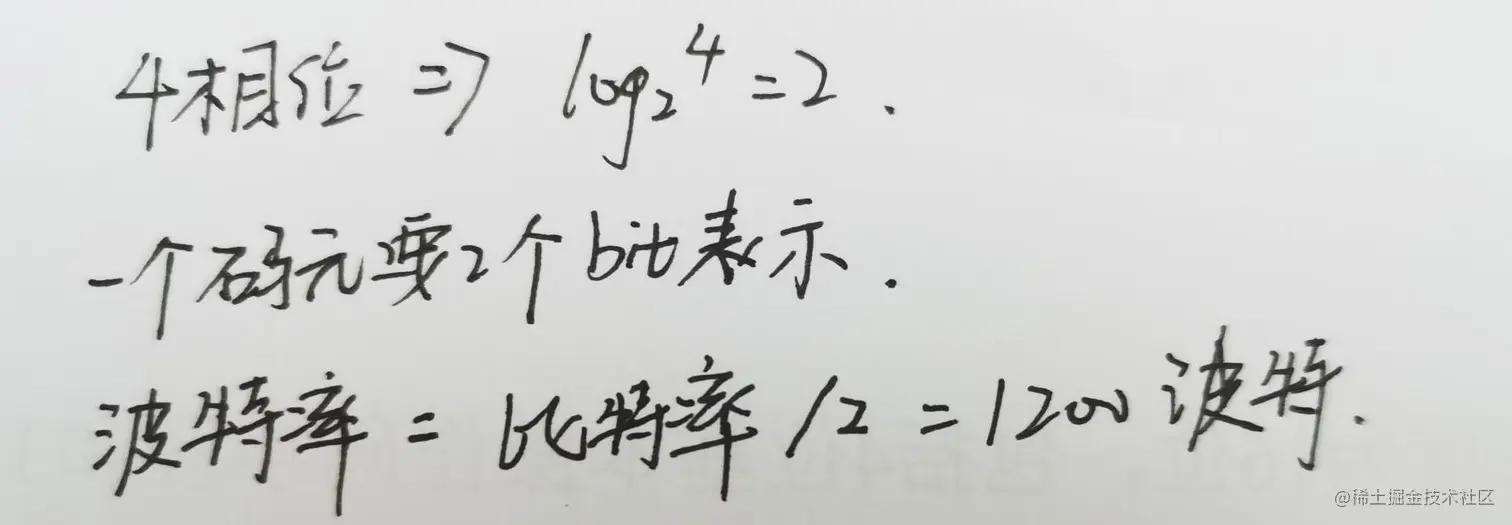 4相位 => log₂⁴ = 2.
一个码元要2个bit表示.
波特率 = 比特率 /2 = 1200 波特.
@稀土掘金技术社区